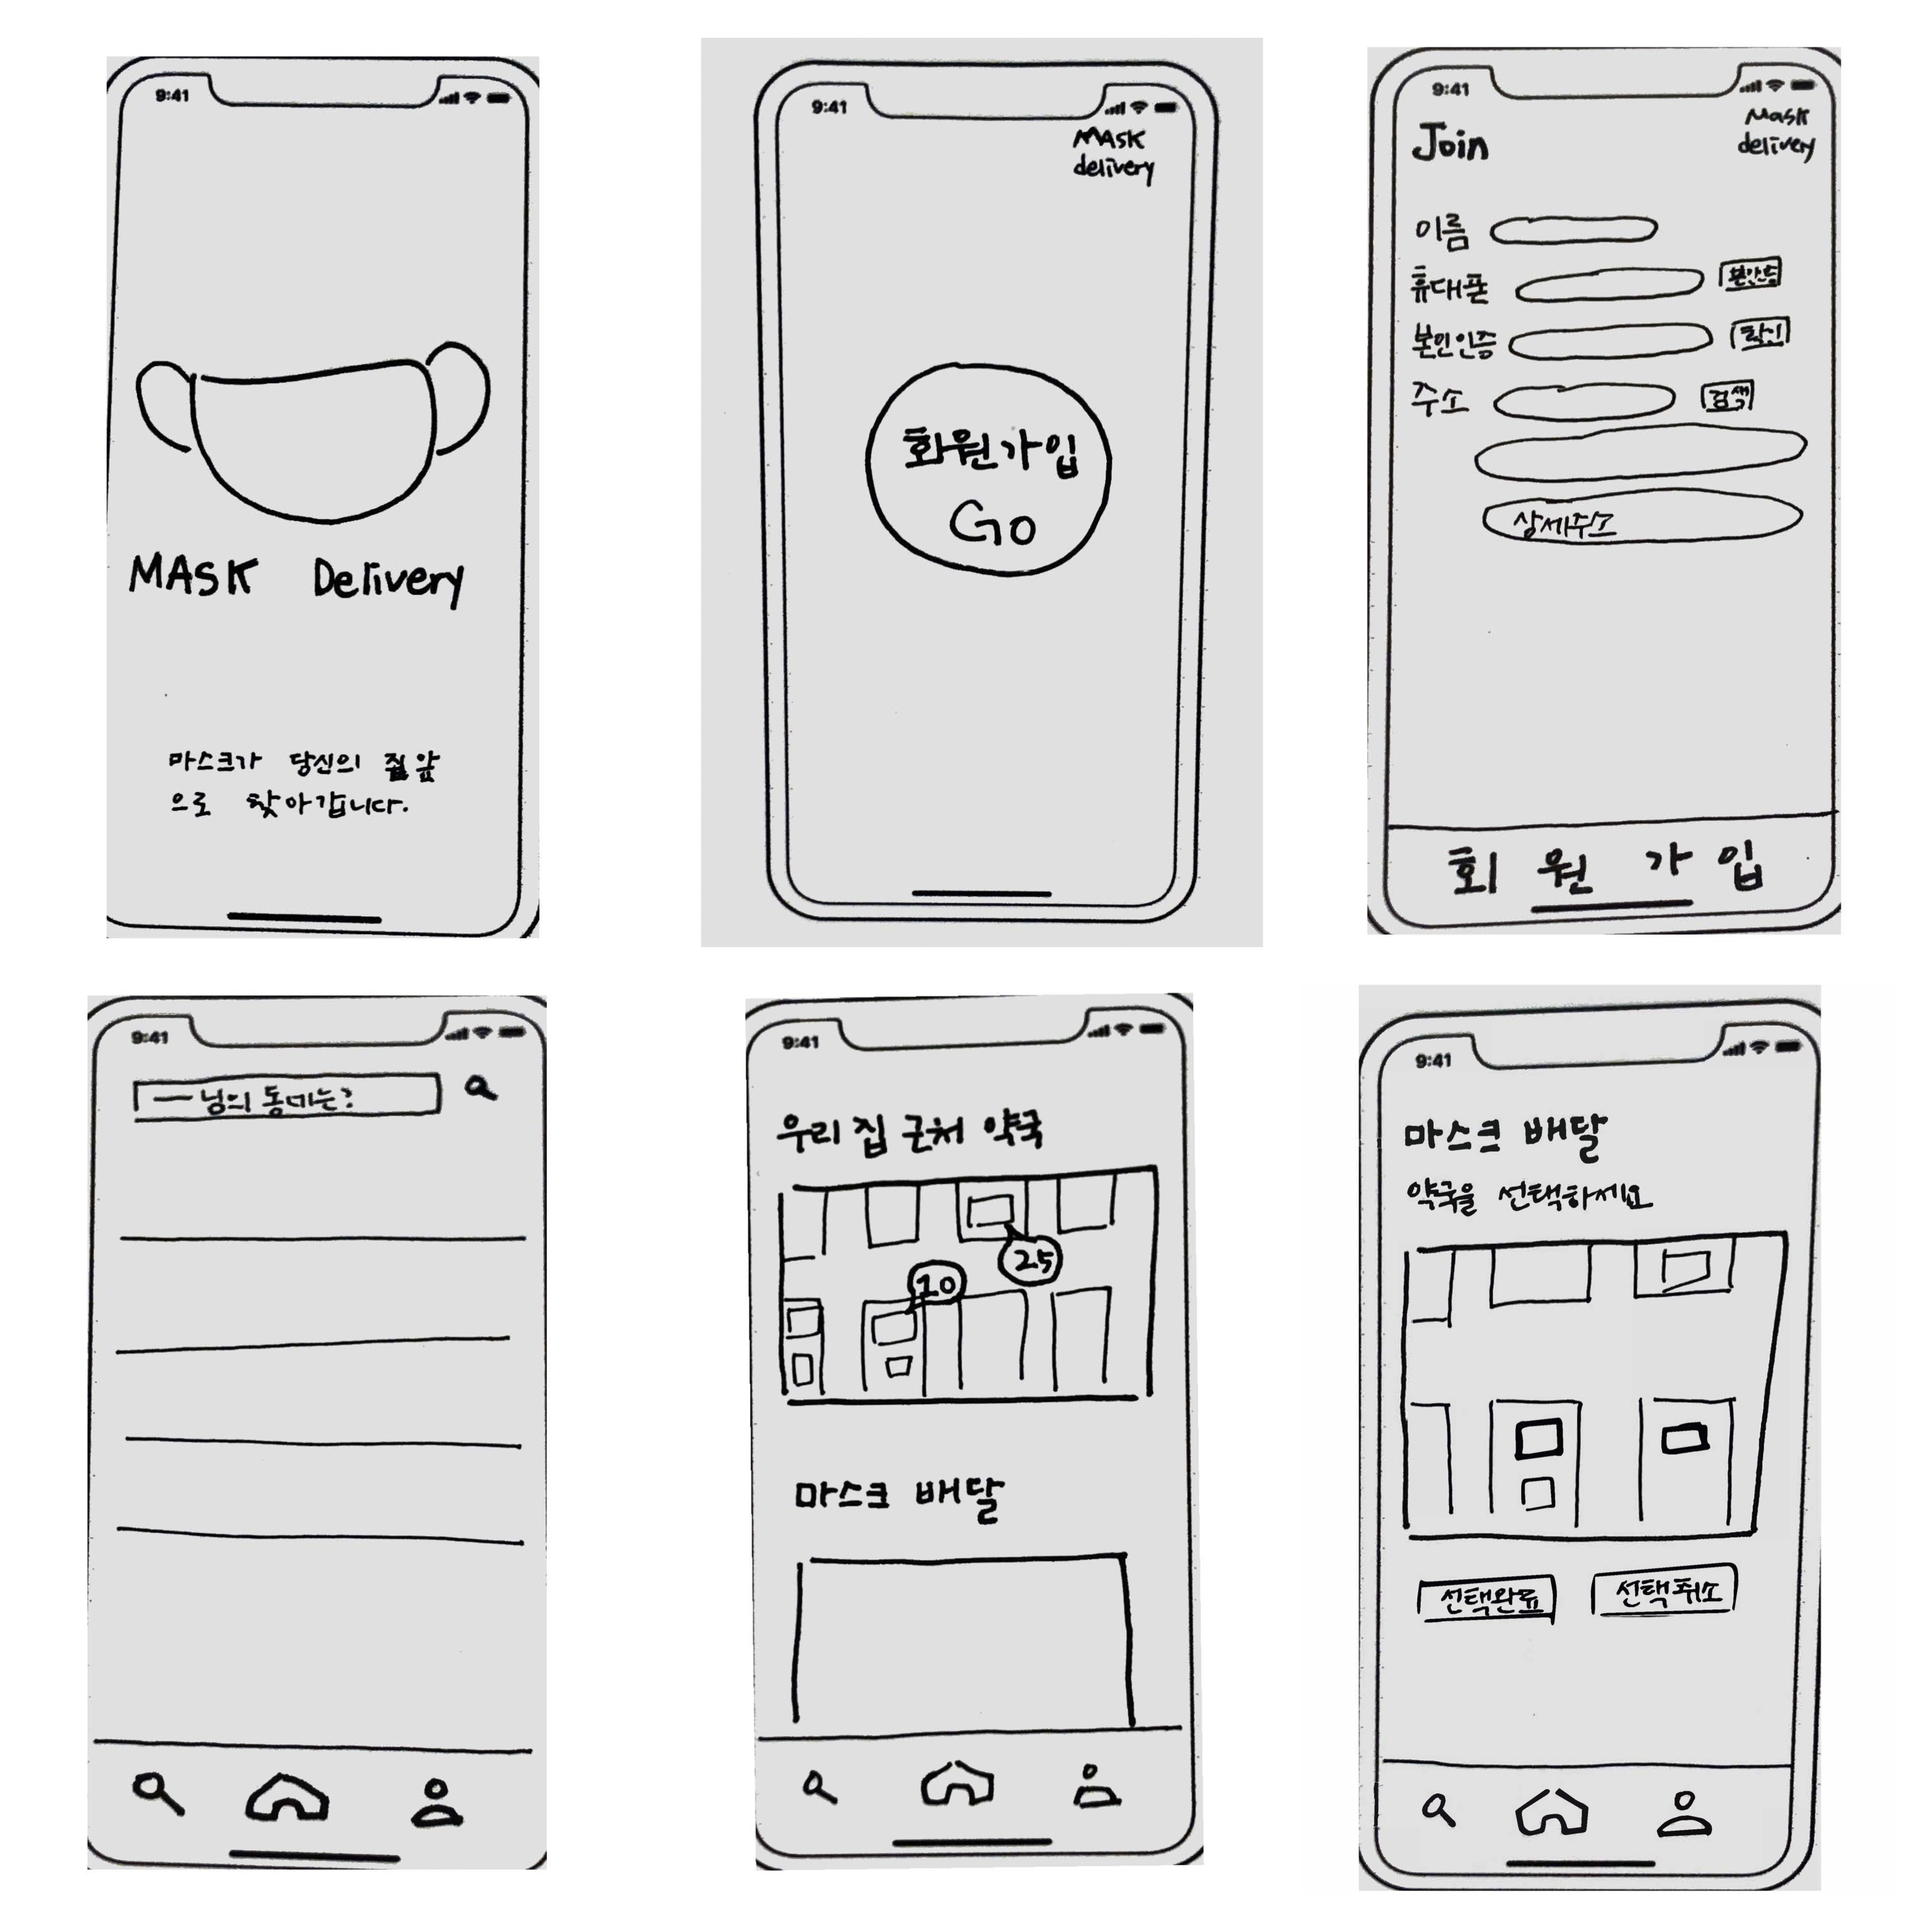 9:41
MASK Delivery
마스크가 당신의 집 앞
으로 찾아갑니다.
9:41
MASK
delivery
회원가입
Go
9:41
Join
Mask
delivery
이름
휴대폰
본인인증
확인
주소
검색
상세주소
회원가입
9:41
님의 동네는?
9:41
우리 집 근처 약국
25
10
마스크 배달
9:41
마스크 배달
약국을 선택하세요
선택완료 선택취소